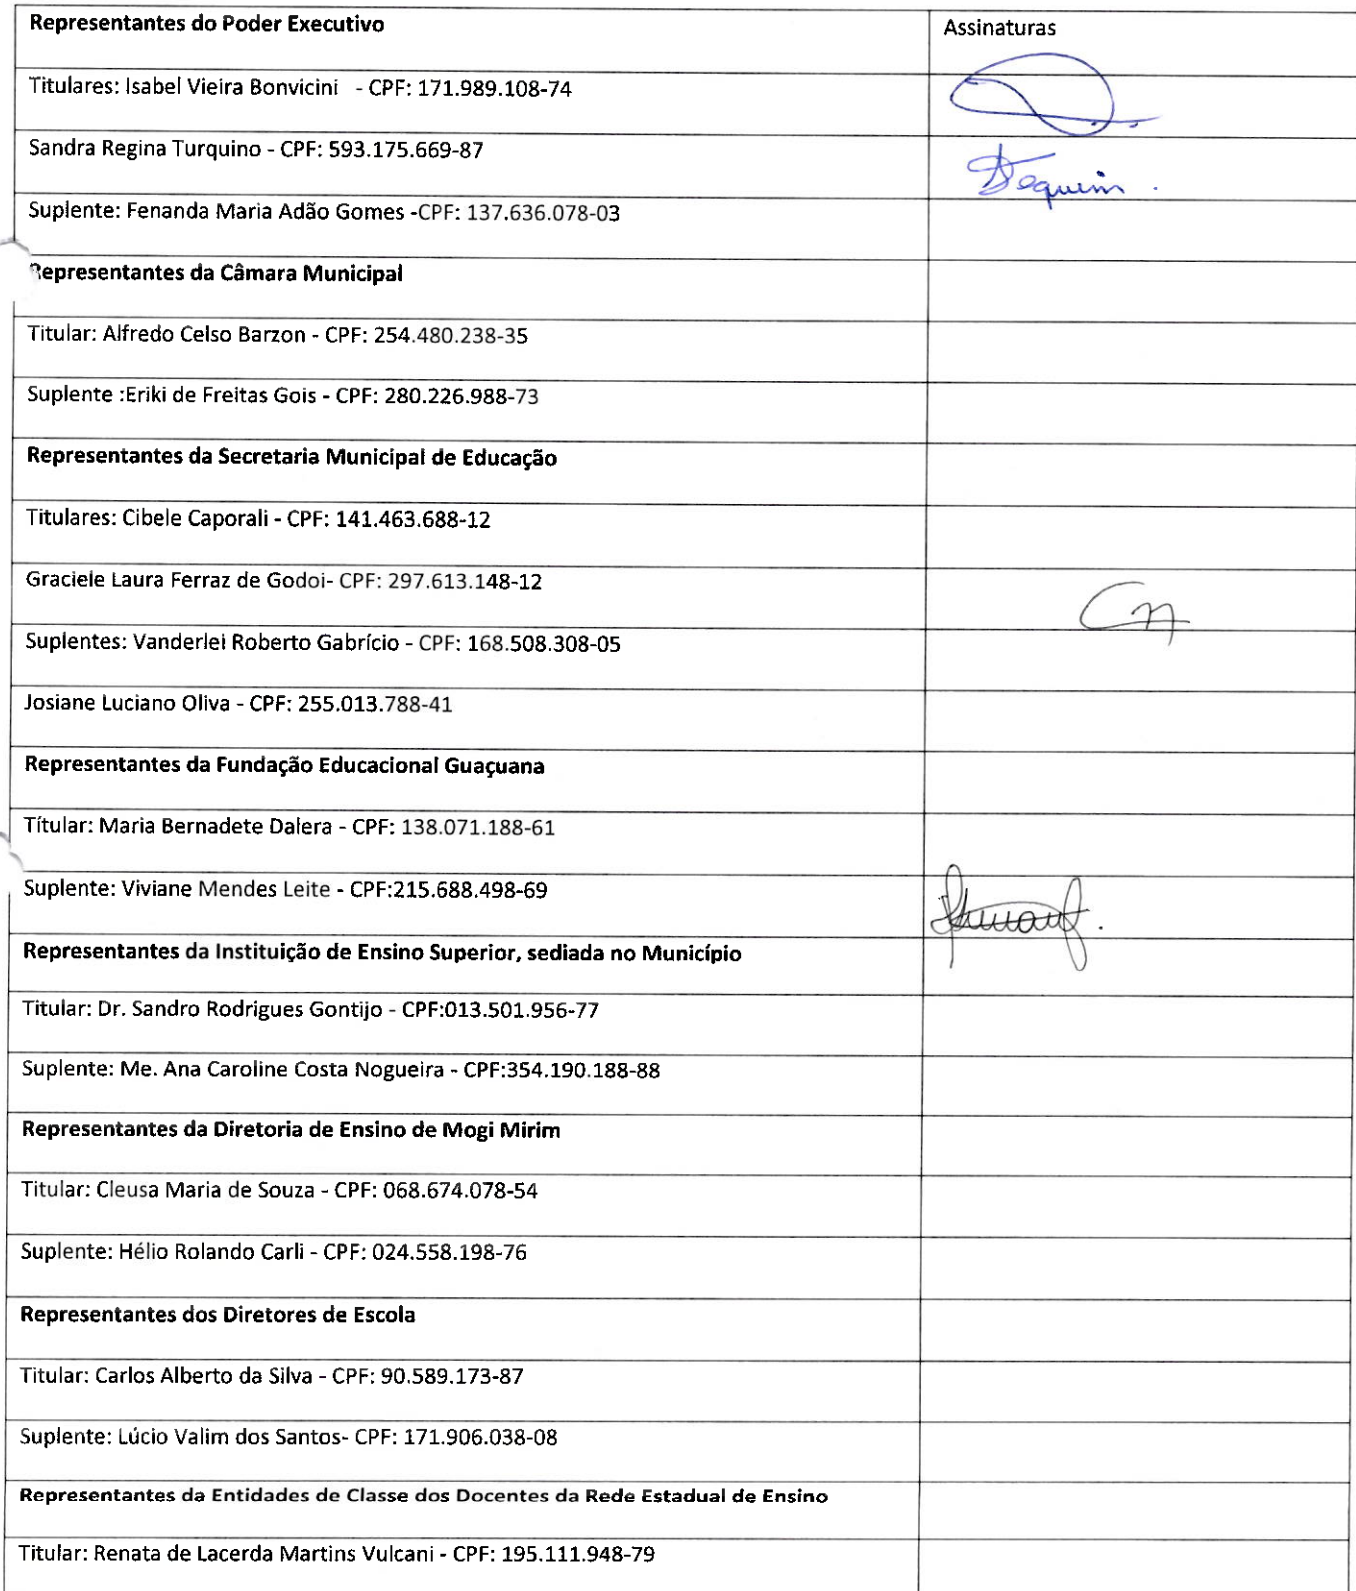 Representantes do Poder Executivo Assinaturas
Titulares: Isabel Vieira Bonvicini - CPF: 171.989.108-74
Sandra Regina Turquino - CPF: 593.175.669-87
Suplente: Fenanda Maria Adão Gomes -CPF: 137.636.078-03
Representantes da Câmara Municipal
Titular: Alfredo Celso Barzon - CPF: 254.480.238-35
Suplente :Eriki de Freitas Gois - CPF: 280.226.988-73
Representantes da Secretaria Municipal de Educação
Titulares: Cibele Caporali - CPF: 141.463.688-12
Graciele Laura Ferraz de Godoi- CPF: 297.613.148-12
Suplentes: Vanderlei Roberto Gabrício - CPF: 168.508.308-05
Josiane Luciano Oliva - CPF: 255.013.788-41
Representantes da Fundação Educacional Guaçuana
Títular: Maria Bernadete Dalera - CPF: 138.071.188-61
Suplente: Viviane Mendes Leite - CPF:215.688.498-69
Representantes da Instituição de Ensino Superior, sediada no Município
Titular: Dr. Sandro Rodrigues Gontijo - CPF:013.501.956-77
Suplente: Me. Ana Caroline Costa Nogueira - CPF:354.190.188-88
Representantes da Diretoria de Ensino de Mogi Mirim
Titular: Cleusa Maria de Souza - CPF: 068.674.078-54
Suplente: Hélio Rolando Carli - CPF: 024.558.198-76
Representantes dos Diretores de Escola
Titular: Carlos Alberto da Silva - CPF: 90.589.173-87
Suplente: Lúcio Valim dos Santos- CPF: 171.906.038-08
Representantes da Entidades de Classe dos Docentes da Rede Estadual de Ensino
Titular: Renata de Lacerda Martins Vulcani - CPF: 195.111.948-79